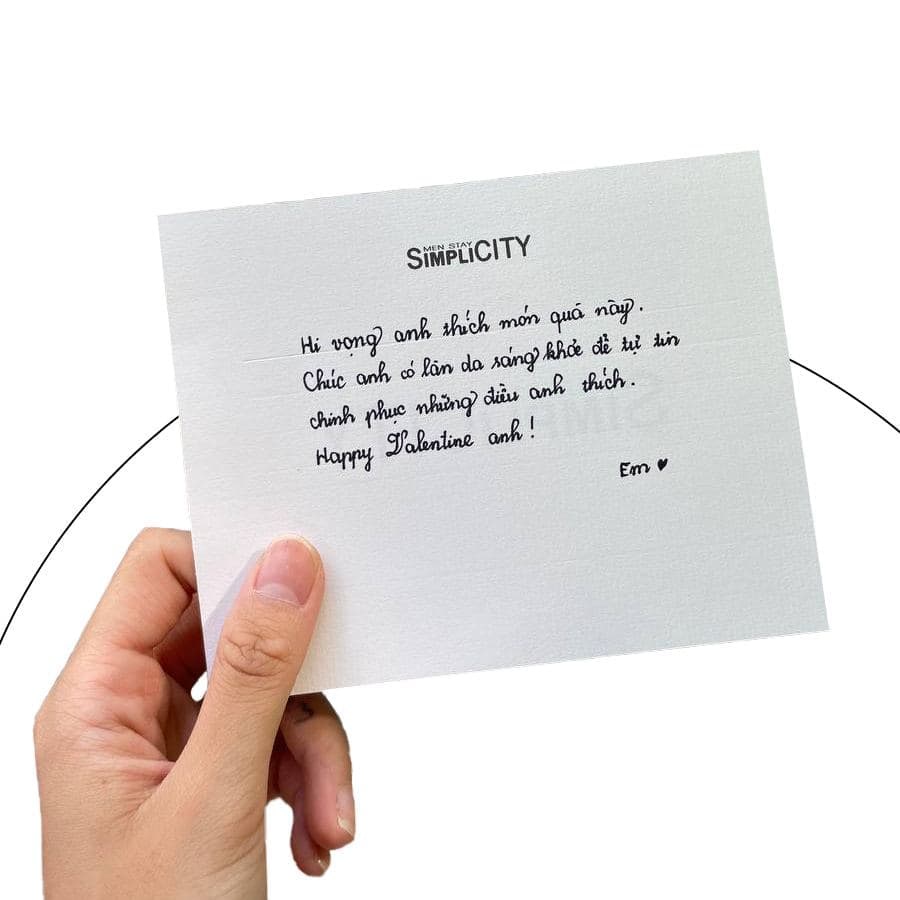 MEN STAY
SIMPLICITY
Hi vọng anh thích món quà này.
Chúc anh có làn da sáng khỏe để tự tin
chinh phục những điều anh thích.
Happy Valentine anh!
Em ♥